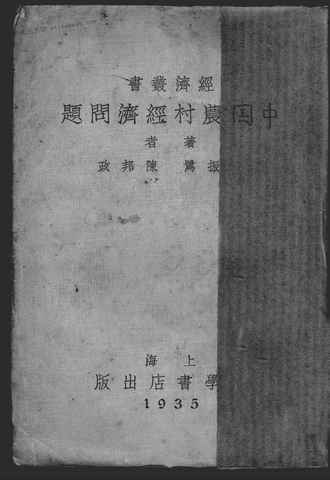 經濟叢書
中国農村經濟問題
著者
振鷺 陳邦政
上海
學書店出版
1935